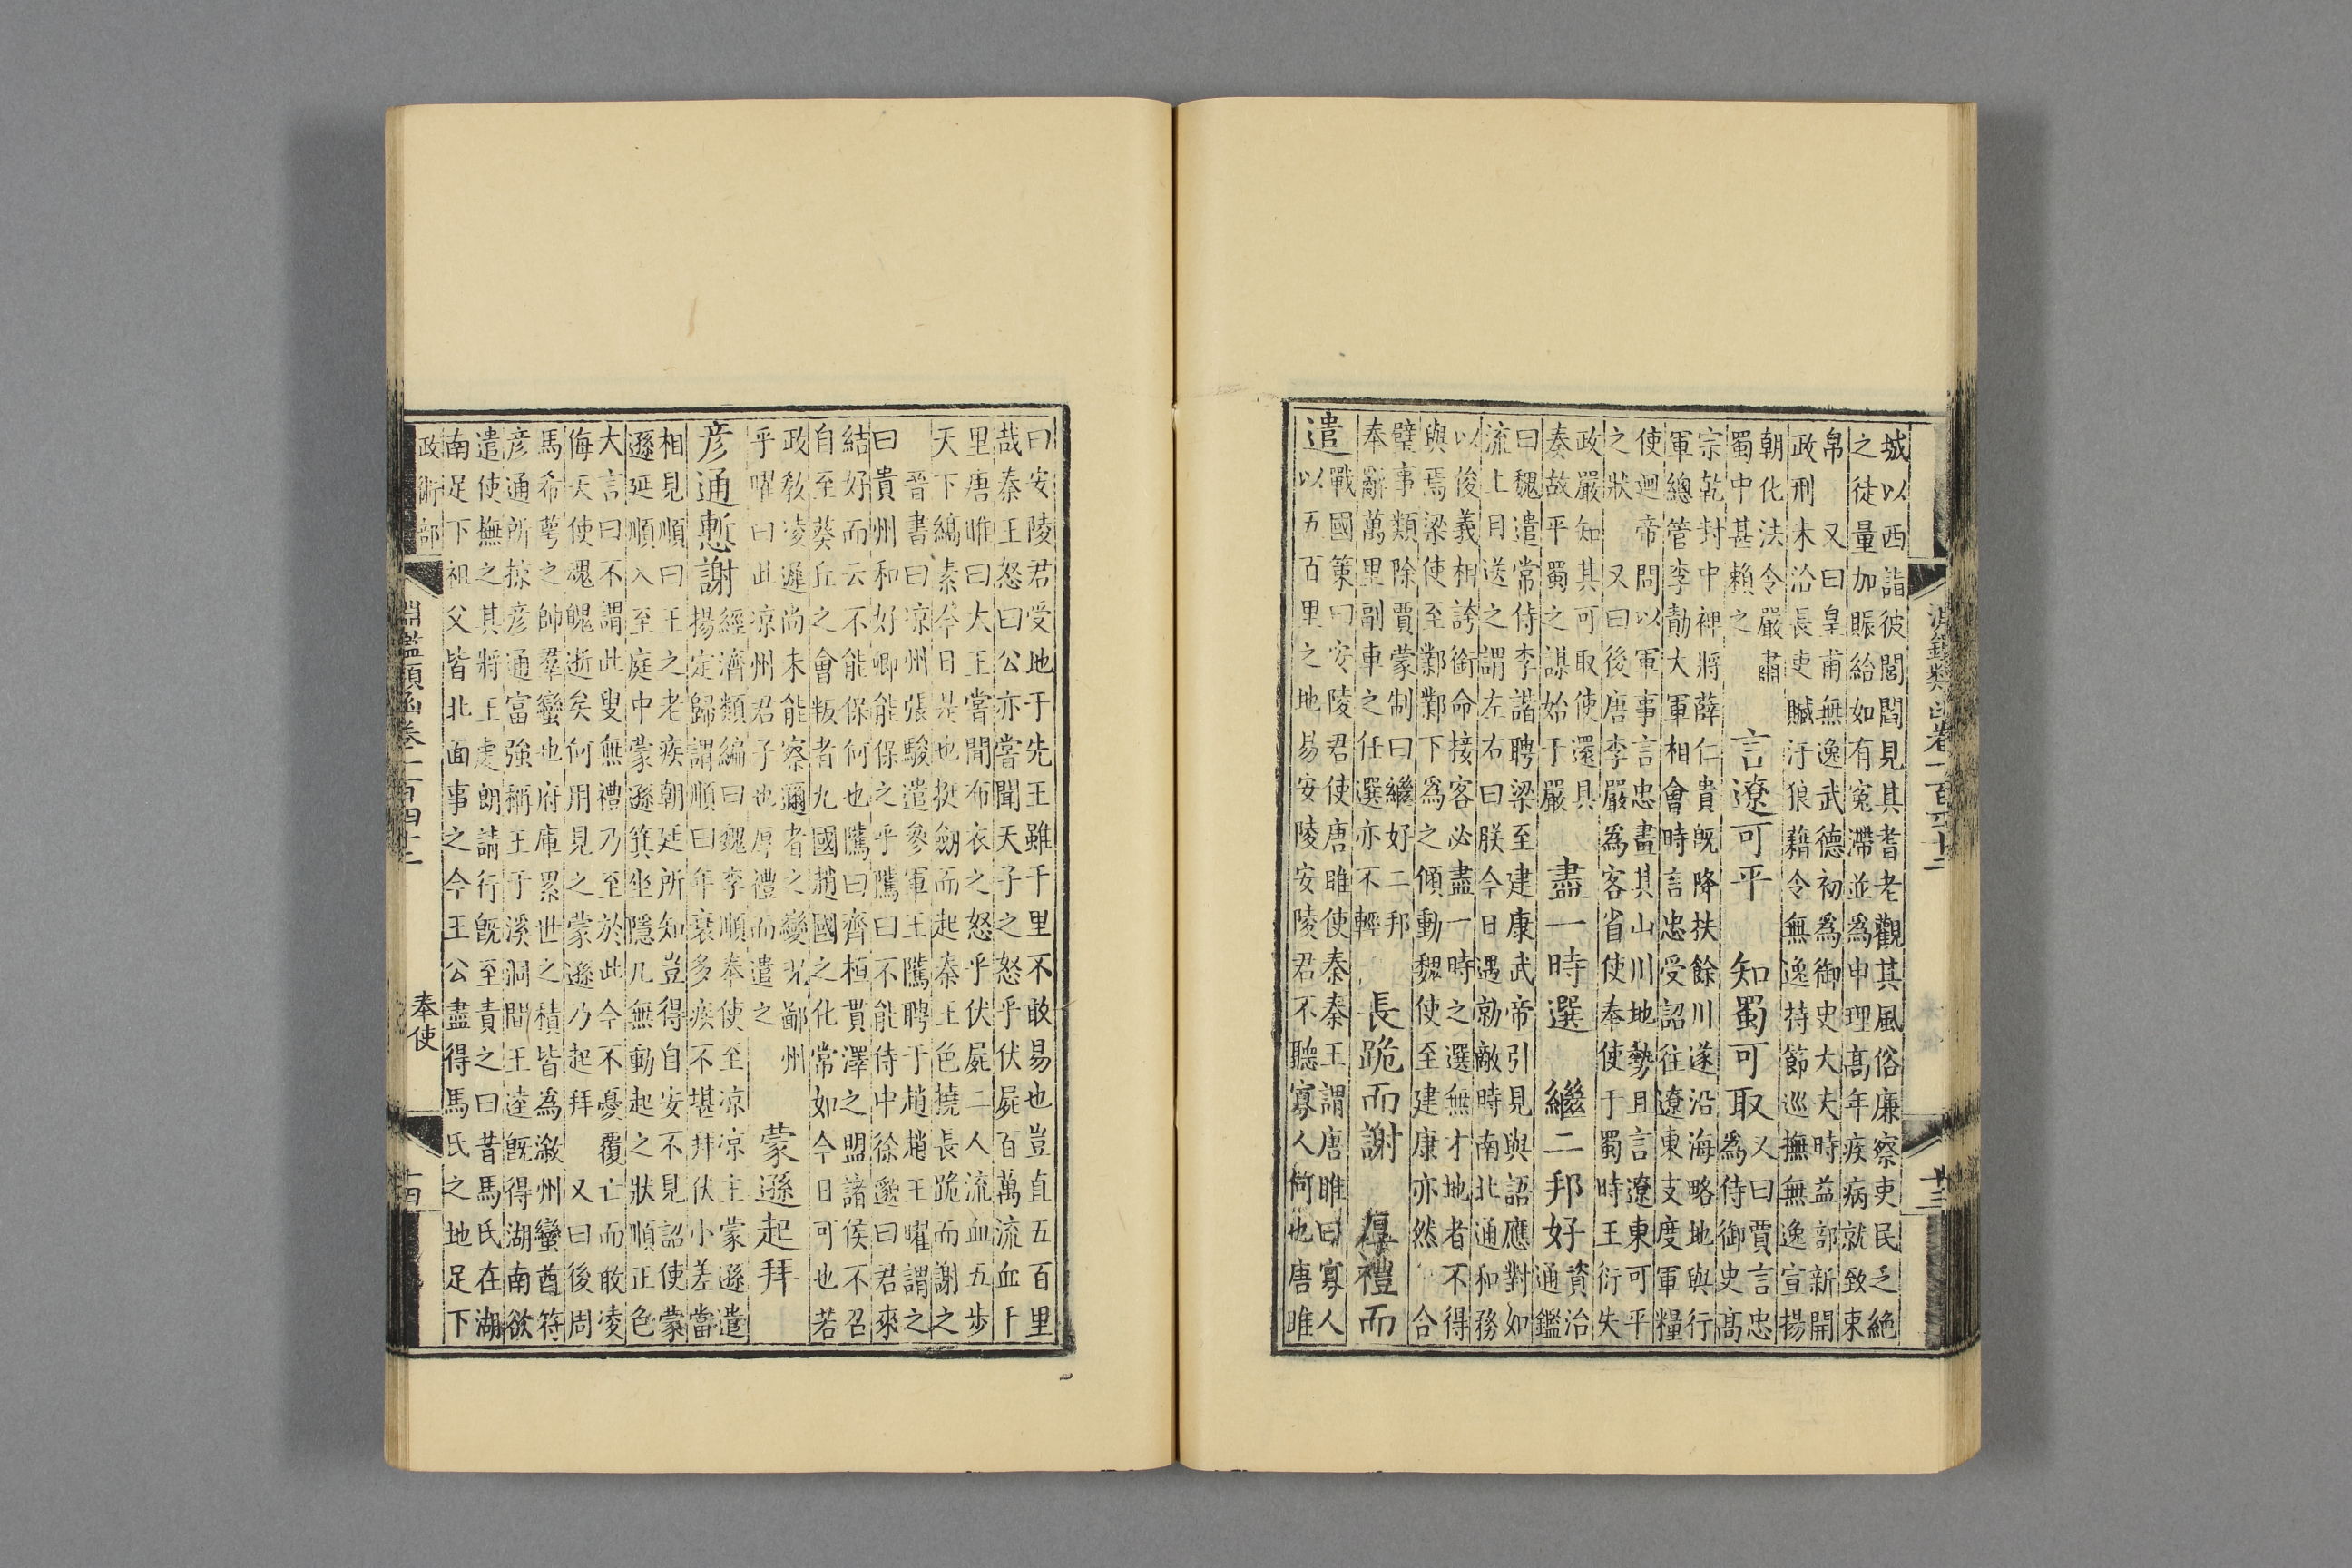 淵鑑類函卷一百四十二 十三
城以西詣彼閭閻見其耆老觀其風俗廉察吏民乏絶
之徒量加賑給如有寃滯並爲申理高年疾病就致束
帛 又曰皇甫無逸武德初爲御史大夫時益部新開
政刑未洽長吏贓汙狼藉令無逸持節巡撫無逸宣揚
朝化法令嚴肅
蜀中甚賴之
言遼可平 知蜀可取
又曰賈言忠
爲侍御史高
宗乾封中裨將薛仁貴既降扶餘川遂沿海略地與行
軍總管李勣大軍相會時言忠受詔往遼東支度軍糧
使迴帝問以軍事言忠畫其山川地勢且言遼東可平
之狀 又曰後唐李嚴爲客省使奉使于蜀時王衍失
政嚴知其可取使還具
奏故平蜀之謀始于嚴
盡一時選 繼二邦好
資治
通鑑
曰魏遣常侍李諧聘梁至建康武帝引見與語應對如
流上目送之謂左右曰朕今日遇勍敵時南北通和務
以俊義相誇銜命接客必盡一時之選無才地者不得
與焉梁使至鄴鄴下爲之傾動魏使至建康亦然 合
璧事類除賈蒙制曰繼好二邦
奉辭萬里副車之任選亦不輕
長跪而謝 厚禮而
遣
戰國策曰安陵君使唐雎使秦秦王謂唐雎曰寡人
以五百里之地易安陵安陵君不聽寡人何也唐雎
曰安陵君受地于先王雖千里不敢易也豈直五百里
哉秦王怒曰公亦嘗聞天子之怒乎伏屍百萬流血千
里唐雎曰大王嘗聞布衣之怒乎伏屍二人流血五步
天下縞素今日是也挺劒而起秦王色撓長跪而謝之
晉書曰凉州張駿遣參軍王隲聘于趙趙王曜謂之
曰貴州和好卿能保之乎隲曰不能侍中徐邈曰君來
結好而云不能保何也隲曰齊桓貫澤之盟諸侯不召
自至葵丘之會叛者九國趙國之化常如今日可也若
政敎凌遲尚未能察邇者之變况鄙州
乎曜曰此凉州君子也厚禮而遣之
蒙遜起拜
彦通慙謝
經濟類編曰魏李順奉使至凉凉主蒙遜遣
揚定歸謂順曰年衰多疾不堪拜伏小差當
相見順曰王之老疾朝廷所知豈得自安不見詔使蒙
遜延順入至庭中蒙遜箕坐隱几無動起之狀順正色
大言曰不謂此叟無禮乃至於此今不憂覆亡而敢凌
侮天使魂魄逝矣何用見之蒙遜乃起拜 又曰後周
馬希萼之帥羣蠻也府庫累世之積皆爲溆州蠻酋符
彦通所掠彦通富強稱王于溪洞間王逵既得湖南欲
遣使撫之其將王虔朗請行既至責之曰昔馬氏在湖
南足下祖父皆北面事之今王公盡得馬氏之地足下
政術部 淵鑑類函卷一百四十二 奉使 十四